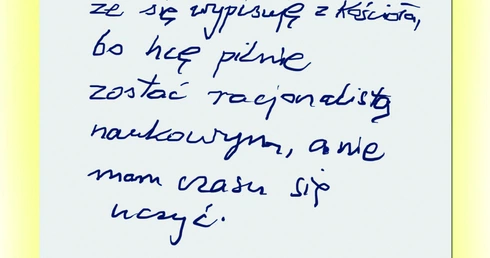 że się wypisuję z Kościoła,
bo hcę pilnie
zostać racjonalistą
naukowym, a nie
mam czasu się
uczyć.